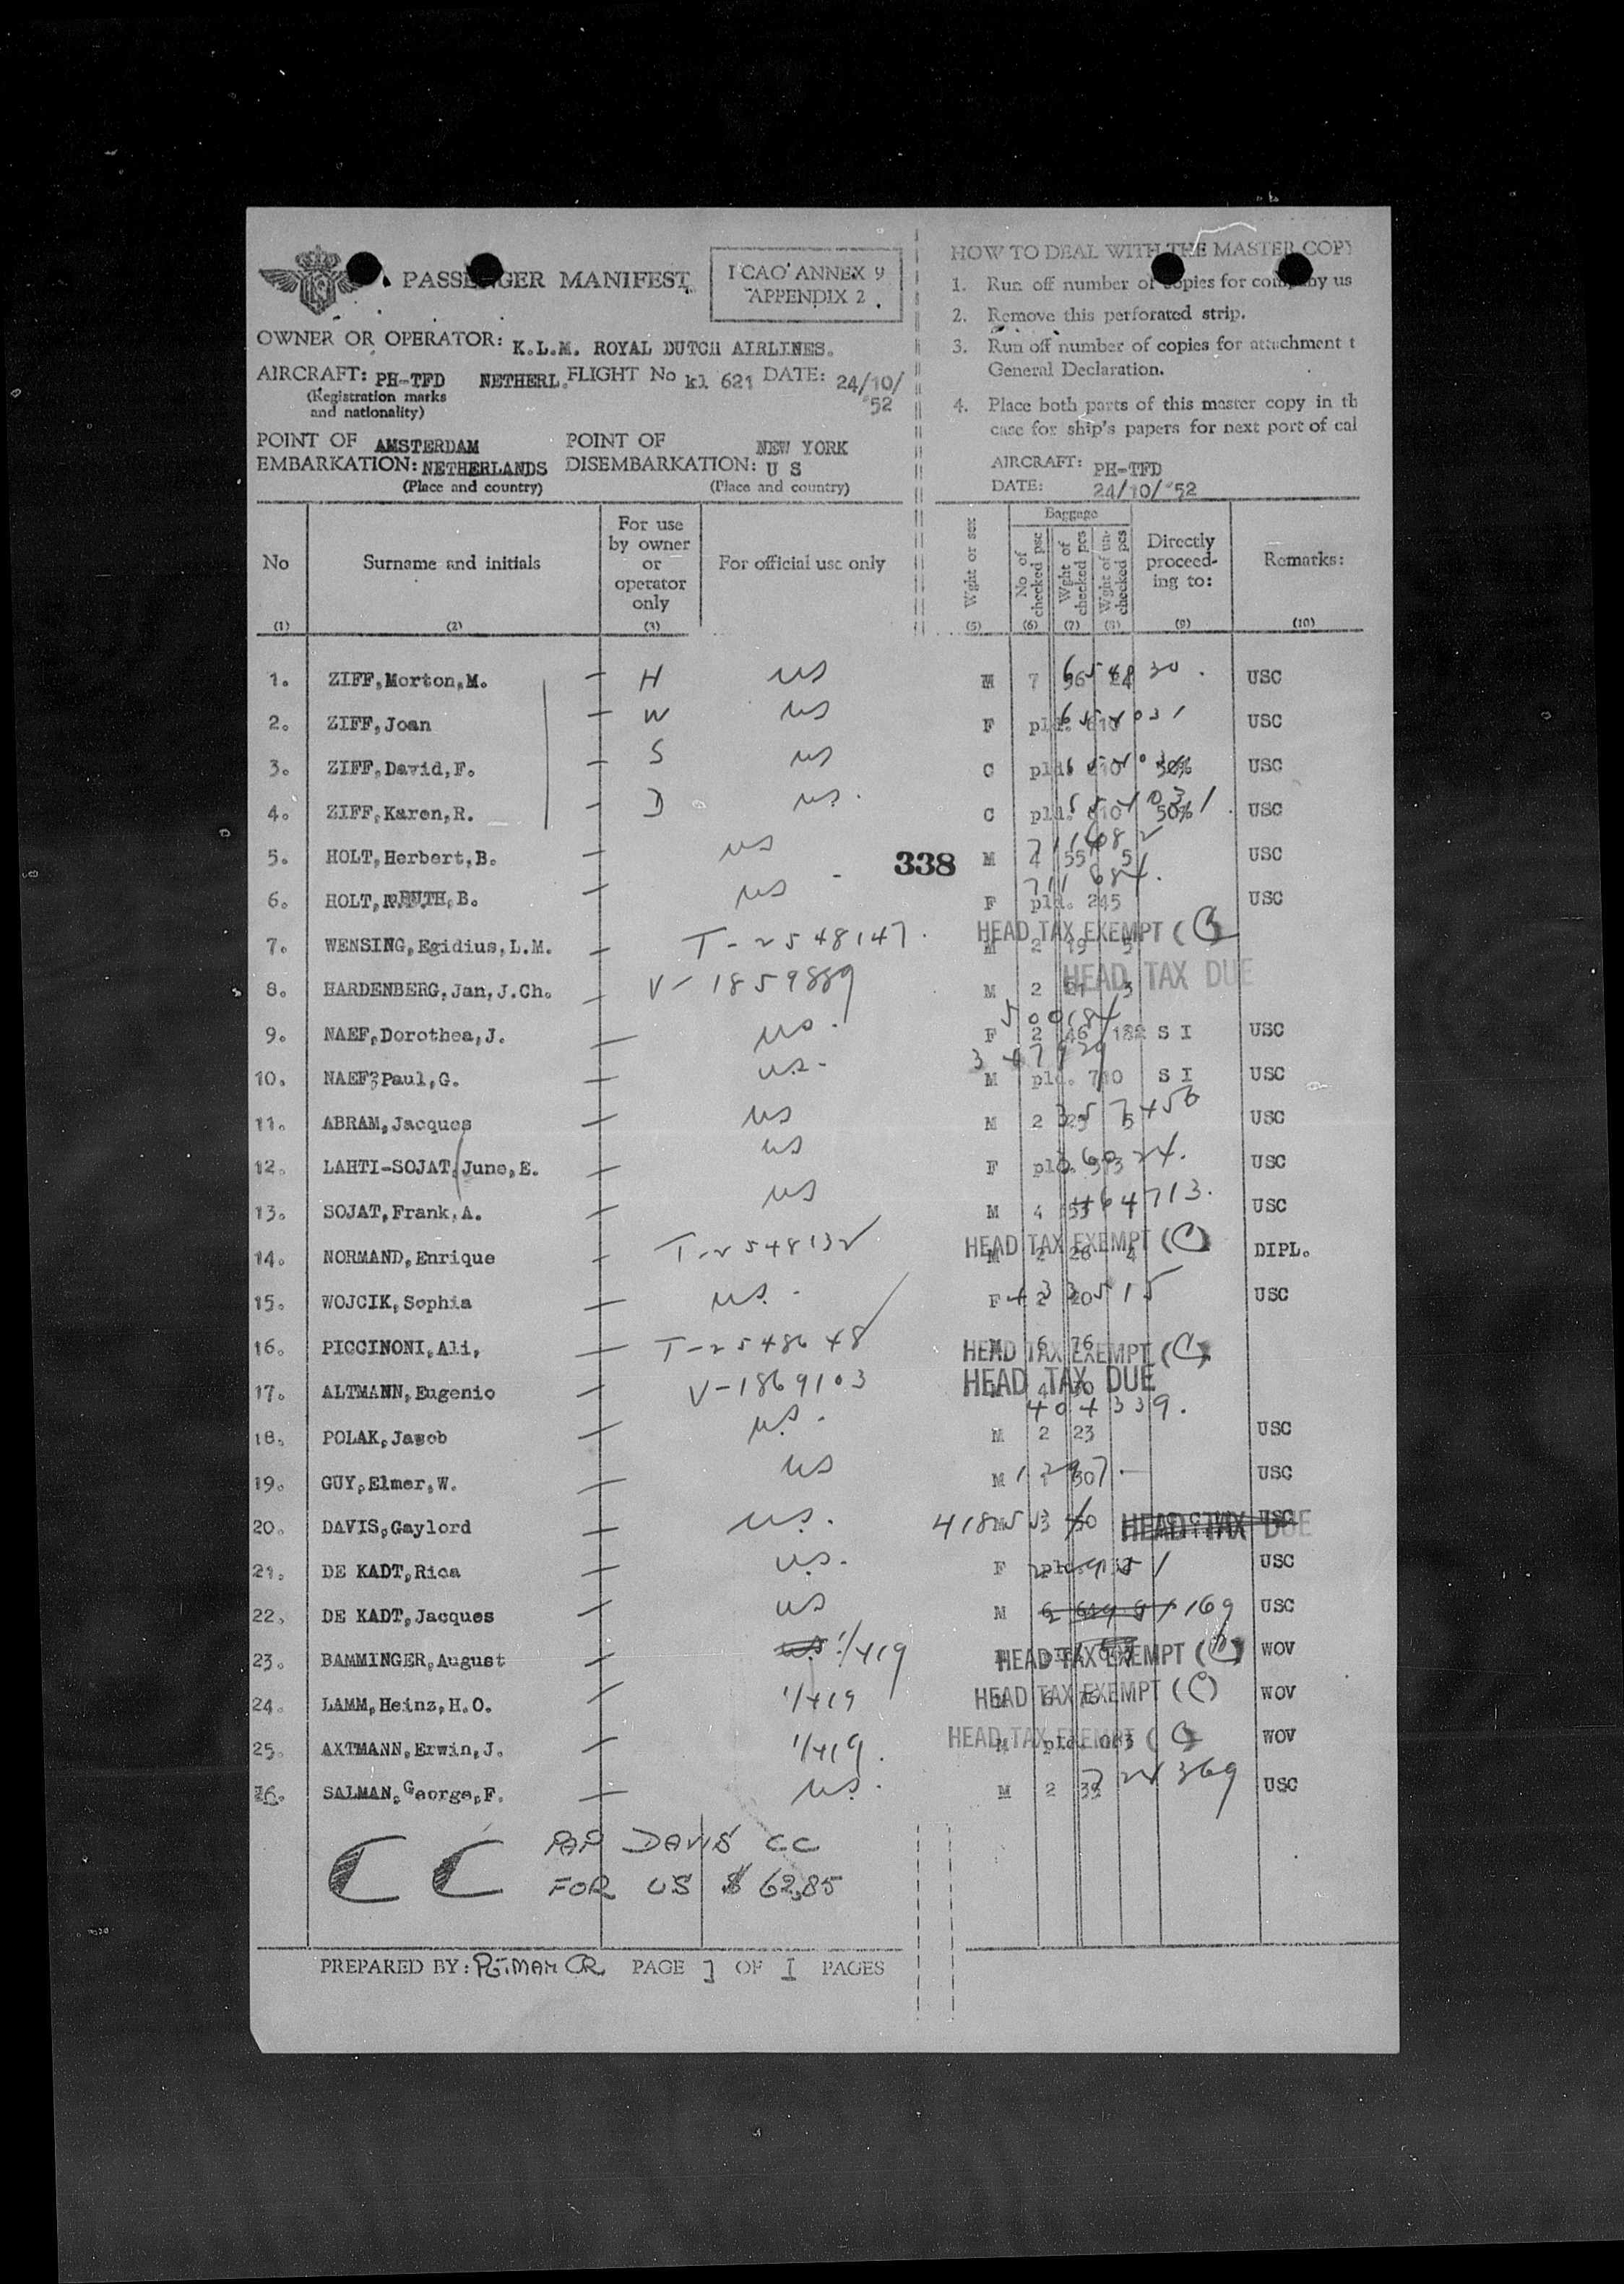 PASSENGER MANIFEST
I CAO ANNEX 9
APPENDIX 2
OWNER OR OPERATOR: K.L.M. ROYAL DUTCH AIRLINES.
AIRCRAFT: PH-TFD NETHERL. FLIGHT No kl 621 DATE: 24/10/
(Registration marks '52
and nationality)
POINT OF AMSTERDAM POINT OF NEW YORK
EMBARKATION: NETHERLANDS DISEMBARKATION: U S
(Place and country) (Place and country)
HOW TO DEAL WITH THE MASTER COPY
1. Run off number of copies for company us
2. Remove this perforated strip.
3. Run off number of copies for attachment t
General Declaration.
4. Place both parts of this master copy in th
case for ship's papers for next port of cal
AIRCRAFT: PH-TFD
DATE: 24/10/'52
No Surname and initials For use by owner or operator only For official use only Wght or sex Baggage No of checked psc Wght of checked pcs Wght of un-checked pcs Directly proceed-ing to: Remarks:
(1) (2) (3) (5) (6) (7) (8) (9) (10)
1. ZIFF,Morton,M. — H US M 7 USC
2. ZIFF,Joan — W US F USC
3. ZIFF,David,F. — S US C 50% USC
4. ZIFF,Karen,R. — D US. C 50% USC
5. HOLT,Herbert,B. — US 338 M 4 55 5 USC
6. HOLT, RUTH,B. — US F pld. 245 USC
7. WENSING,Egidius,L.M. — T-2548147. HEAD TAX EXEMPT (C) M 2 19 5
8. HARDENBERG,Jan,J.Ch. — V-1859889 M 2 3 HEAD TAX DUE
9. NAEF,Dorothea,J. — US. F 2 46 S I USC
10. NAEF,Paul,G. — US. M pld. 710 S I USC
11. ABRAM,Jacques — US M 2 5 USC
12. LAHTI-SOJAT,June,E. — US F USC
13. SOJAT,Frank,A. — US M 4 53 464713. USC
14. NORMAND,Enrique — T-2548132 HEAD TAX EXEMPT (C) M 2 26 4 DIPL.
15. WOJCIK,Sophia — US. F 2 20 USC
16. PICCINONI,Ali, — T-2548648 HEAD TAX EXEMPT (C) 6 76
17. ALTMANN,Eugenio — V-1869103 HEAD TAX DUE
404339.
18. POLAK,Jacob US. M 2 23 USC
19. GUY,Elmer,W. — US M USC
20. DAVIS,Gaylord — US. HEAD TAX DUE USC
21. DE KADT,Rica — US. F USC
22. DE KADT,Jacques — US M USC
23. BAMMINGER,August — US 1/419 HEAD TAX EXEMPT (C) WOV
24. LAMM,Heinz,H.O. — 1/419 HEAD TAX EXEMPT (C) WOV
25. AXTMANN,Erwin,J. — 1/419. HEAD TAX EXEMPT (C) M WOV
26. SALMAN,George,F. — US. M 2 USC
CC PAP DAVIS CC
FOR US $ 62,85
PREPARED BY: PAGE 1 OF I PAGES